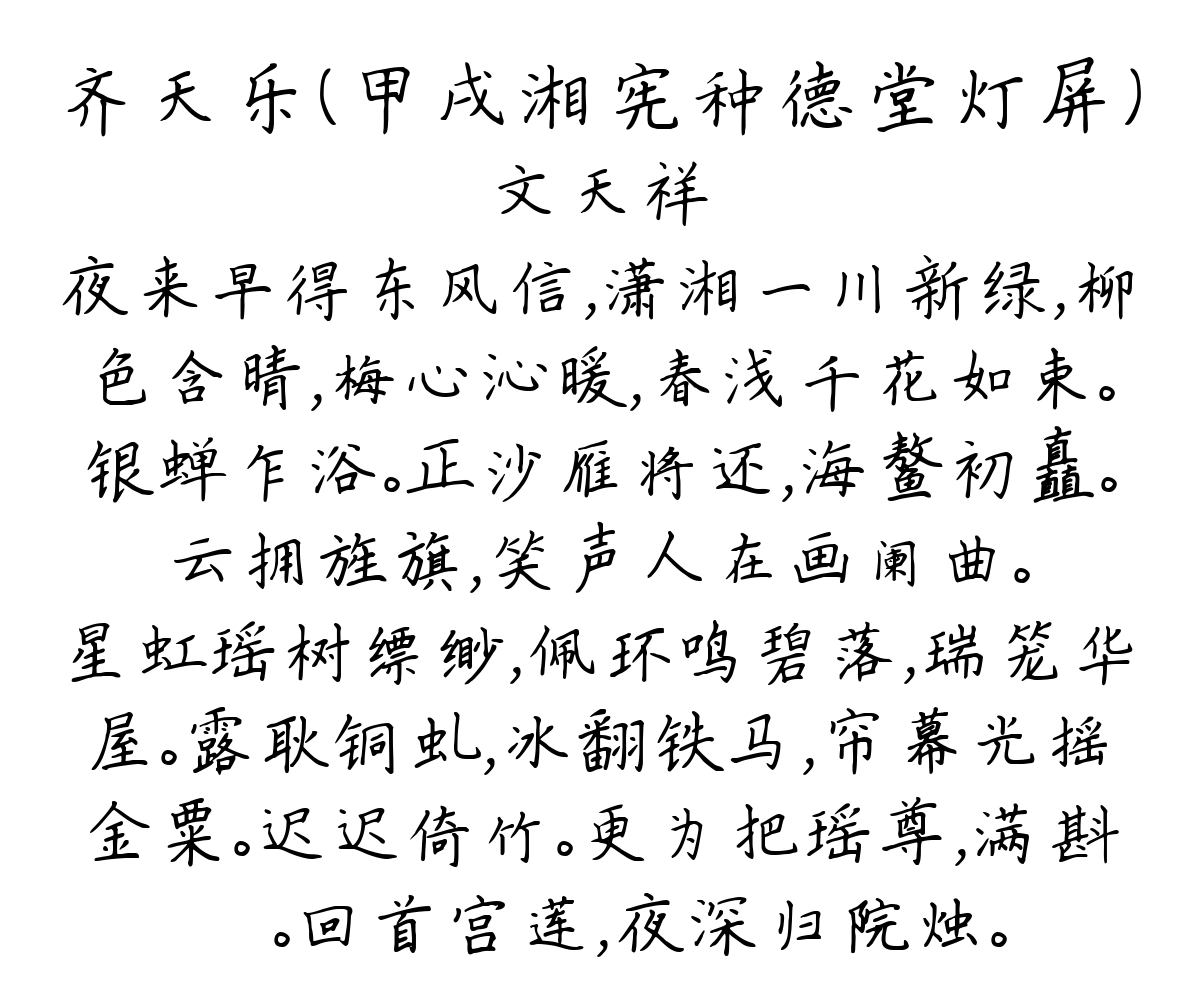 齐天乐(甲戌湘宪种德堂灯屏)
文天祥
夜来早得东风信,潇湘一川新绿,柳
色含晴,梅心沁暖,春浅千花如束。
银蝉乍浴。正沙雁将还,海鳌初矗。
云拥旌旗,笑声人在画阑曲。
星虹瑶树缥缈,佩环鸣碧落,瑞笼华
屋。露耿铜虬,冰翻铁马,帘幕光摇
金粟。迟迟倚竹。更为把瑶尊,满斟
。回首宫莲,夜深归院烛。